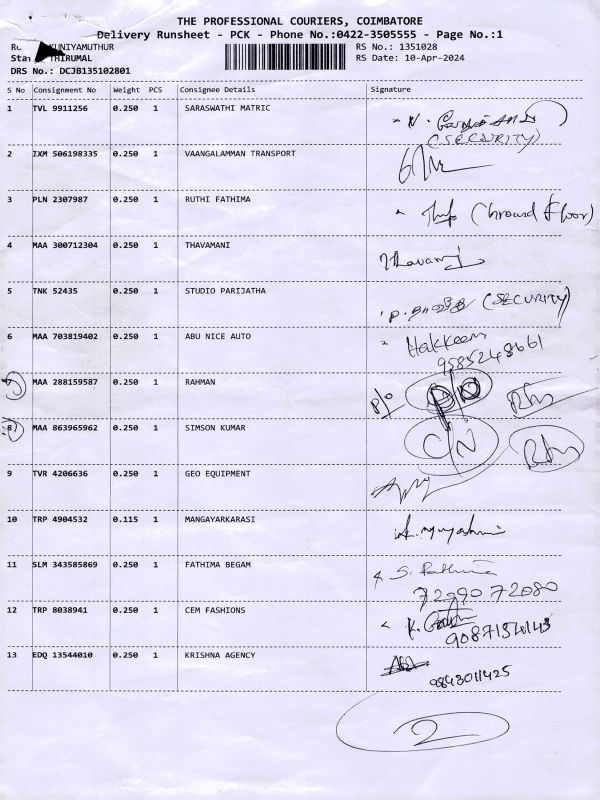 THE PROFESSIONAL COURIERS, COIMBATORE
Delivery Runsheet - PCK - Phone No.:0422-3505555 - Page No.:1
KUNIYAMUTHUR
RS No.: 1351028
THIRUMAL
RS Date: 10-Apr-2024
DRS No.: DCJB135102801
S No Consignment No Weight PCS Consignee Details Signature
1 TVL 9911256 0.250 1 SARASWATHI MATRIC
(SECURITY)
2 IXM 506198335 0.250 1 VAANGALAMMAN TRANSPORT
3 PLN 2307987 0.250 1 RUTHI FATHIMA
(Ground Floor)
4 MAA 300712304 0.250 1 THAVAMANI
Thavamani
5 TNK 52435 0.250 1 STUDIO PARIJATHA
(SECURITY)
6 MAA 703819402 0.250 1 ABU NICE AUTO
Hakkeem
9585248661
7 MAA 288159587 0.250 1 RAHMAN
8 MAA 863965962 0.250 1 SIMSON KUMAR
C/N
9 TVR 4206636 0.250 1 GEO EQUIPMENT
10 TRP 4904532 0.115 1 MANGAYARKARASI
11 SLM 343585869 0.250 1 FATHIMA BEGAM
S. Fathima
7299072080
12 TRP 8038941 0.250 1 CEM FASHIONS
13 EDQ 13544010 0.250 1 KRISHNA AGENCY
9843011425
2